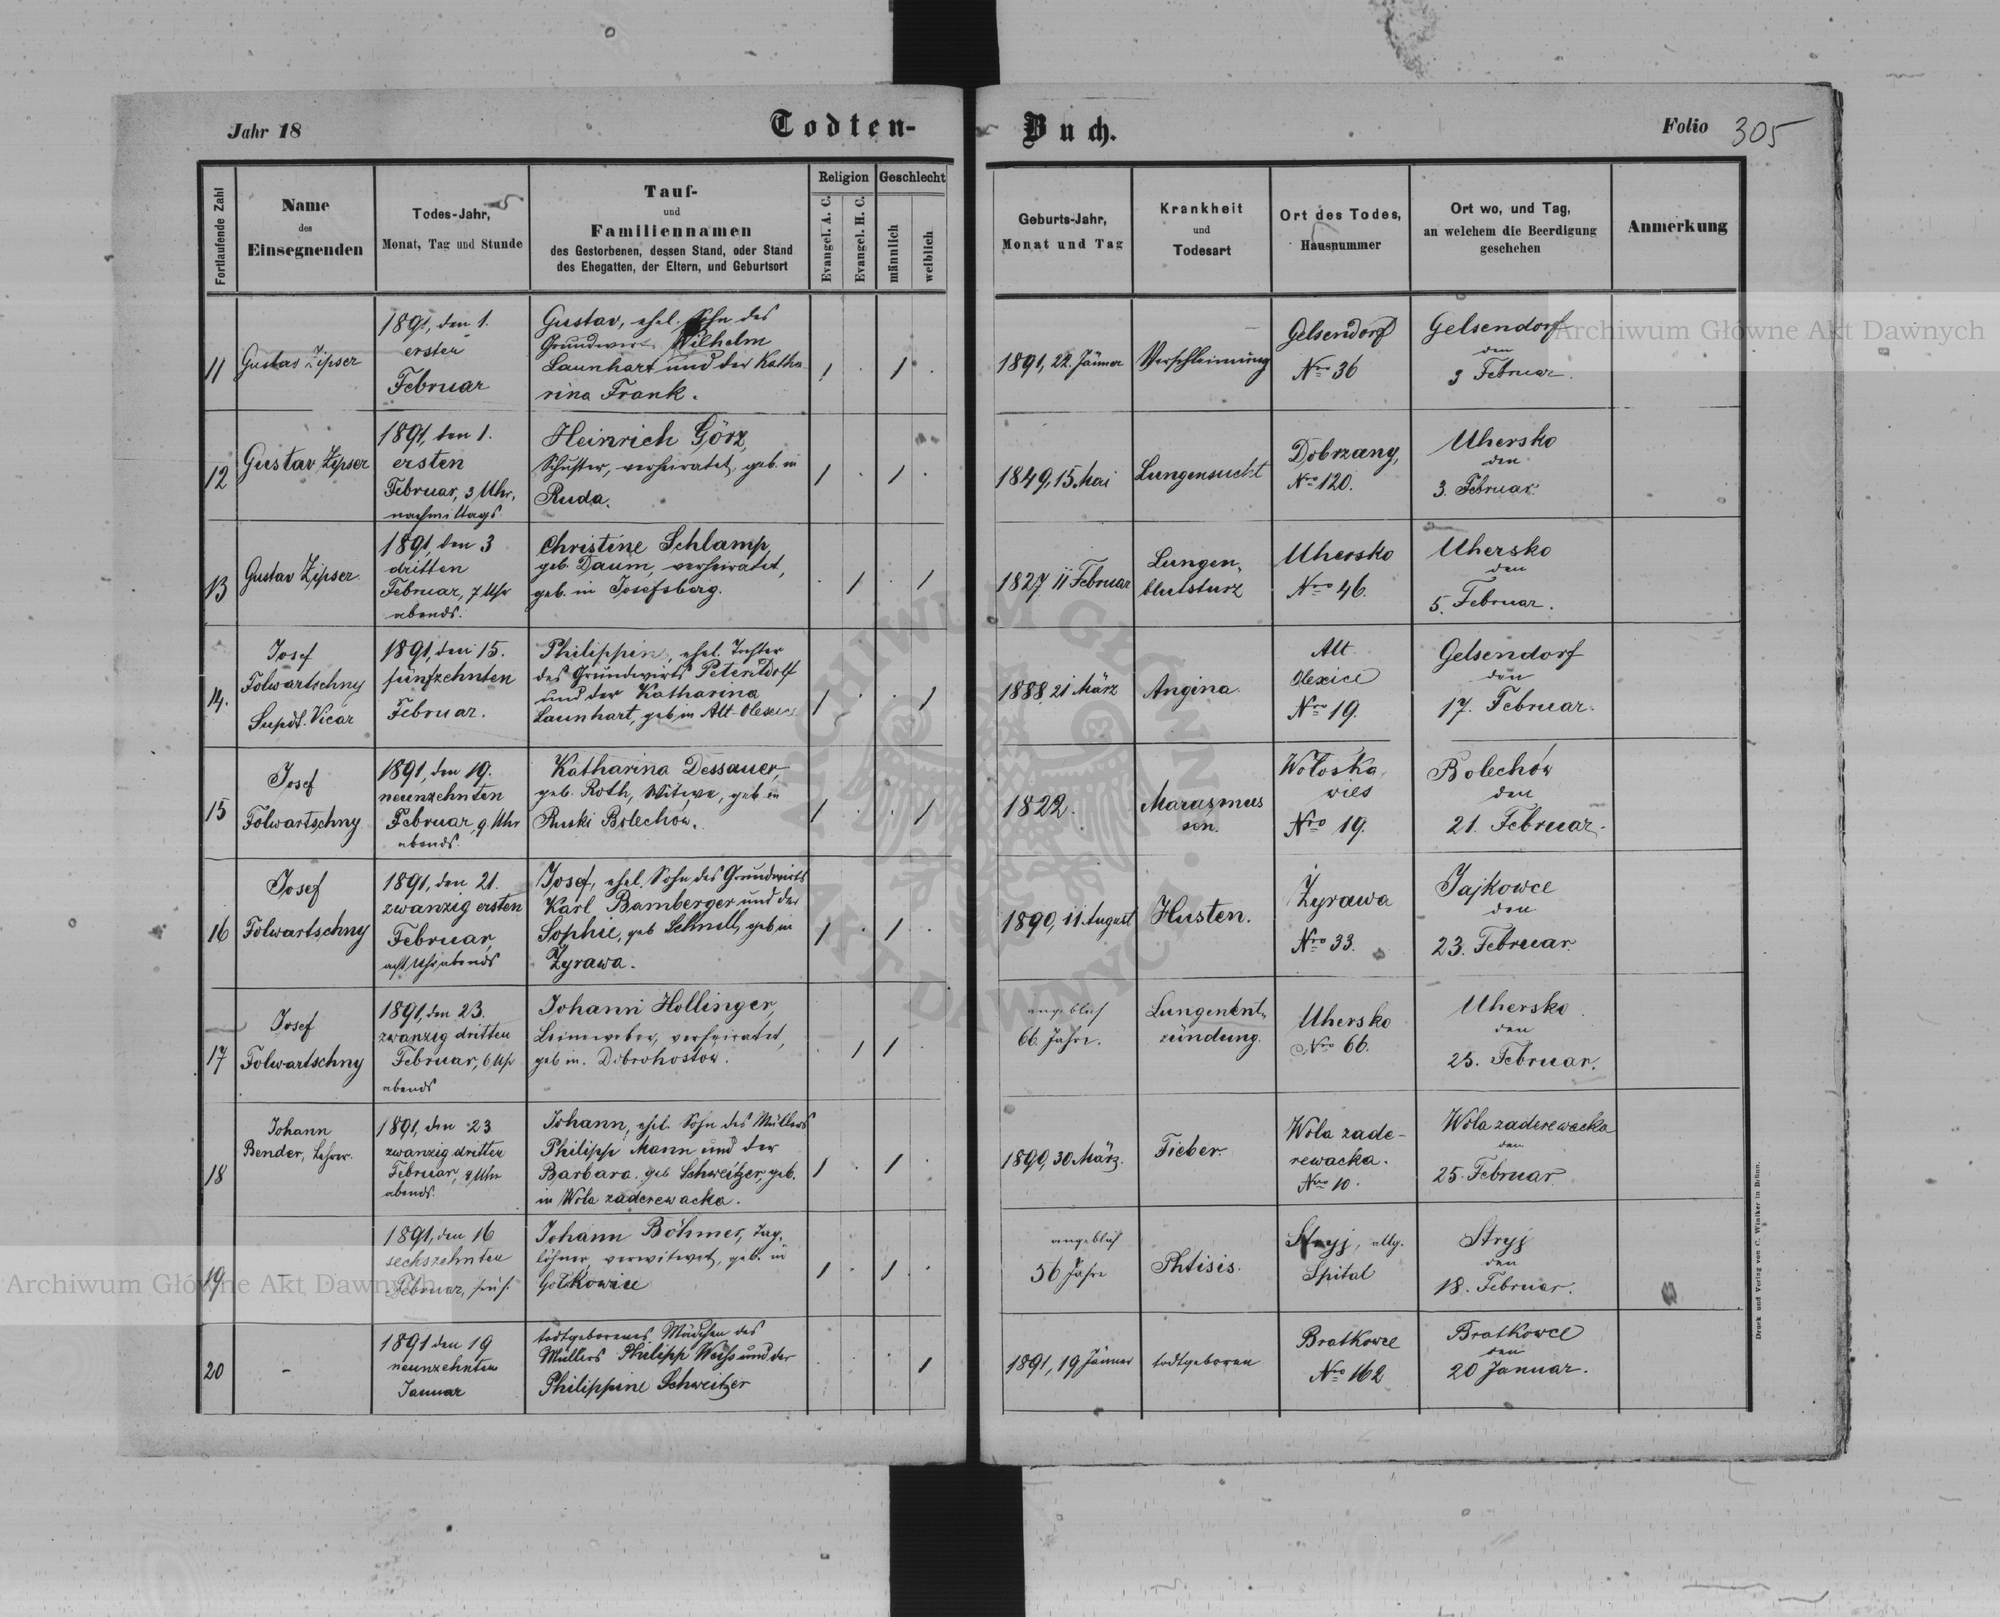 Jahr 18
Todten-
Buch.
Folio 305
Fortlaufende Zahl
Name
des
Einsegnenden
Todes-Jahr,
Monat, Tag und Stunde
Tauf-
und
Familiennamen
des Gestorbenen, dessen Stand, oder Stand
des Ehegatten, der Eltern, und Geburtsort
Religion
Evangel. A. C.
Evangel. H. C.
Geschlecht
männlich
weiblich
Geburts-Jahr,
Monat und Tag
Krankheit
und
Todesart
Ort des Todes,
Hausnummer
Ort wo, und Tag,
an welchem die Beerdigung
geschehen
Anmerkung
11
Gustav Zipser
1891, den 1.
erster
Februar
Gustav, ehel. Sohn des
Grundwirts Wilhelm
Launhart und der Katha
rina Frank.
1 . 1 .
1891, 22. Jänner
Verschleimung
Gelsendorf
Nro 36
Gelsendorf
den
3 Februar.
12
Gustav Zipser
1891, den 1.
ersten
Februar, 3 Uhr,
nachmittags
Heinrich Görz,
Schuster, verheiratet, geb. in
Ruda.
1 . 1 .
1849, 15 Mai
Lungensucht
Dobrzany,
Nro 120.
Uhersko
den
3. Februar.
13
Gustav Zipser.
1891, den 3
dritten
Februar, 7 Uhr
abends.
Christine Schlamp
geb. Daum, verheiratet,
geb. in Josefsberg.
. 1 . 1
1827 11 Februar
Lungen-
blutsturz
Uhersko
Nro 46.
Uhersko
den
5. Februar.
14.
Josef
Folwartschny
Supdt. Vicar
1891, den 15.
fünfzehnten
Februar.
Philippin, ehel. Tochter
des Grundwirts Peter Dorf
und der Katharina
Launhart, geb in Alt-Olexice
1 . . 1
1888, 21 März
Angina.
Alt
Olexice
Nro 19.
Gelsendorf
den
17. Februar.
15
Josef
Folwartschny
1891, den 19.
neunzehnten
Februar, 9 Uhr
abends.
Katharina Dessauer,
geb. Roth, Witwe, geb in
Ruski Bolechow.
1 . . 1
1822.
Marasmus
sen.
Wołoska
wies
Nro 19.
Bolechów
den
21. Februar.
16
Josef
Folwartschny
1891, den 21.
zwanzig ersten
Februar,
acht Uhr abends
Josef, ehel. Sohn des Grundwirts
Karl Bamberger und der
Sophie, geb Schnell, geb in
Żyrawa.
1 . 1 .
1890, 11 August
Husten.
Żyrawa
Nro 33.
Jajkowce
den
23. Februar.
17
Josef
Folwartschny
1891, den 23.
zwanzig dritten
Februar, 6 Uhr
abends
Johann Hollinger,
Leineweber, verheiratet,
geb in. Dobrohostow.
. 1 1 .
angeblich
66. Jahre.
Lungenent-
zündung.
Uhersko
Nro 66.
Uhersko
den
25. Februar.
18
Johann
Bender, Lehrer.
1891, den 23
zwanzig dritter
Februar, 9 Uhr
abends.
Johann, ehel. Sohn des Müllers
Philipp Mann und der
Barbara. geb Schweitzer, geb.
in Wola zaderewacka.
1 . 1 .
1890, 30 März.
Fieber.
Wola zade-
rewacka.
Nro 10.
Wola zaderewacka
den
25. Februar
19
-
1891, den 16
sechszehnten
Februar, früh.
Johann Böhmer, Tag-
löhner, verwitwet, geb. in
1 . 1 .
angeblich
56 Jahre
Phtisis.
Stryj, allg.
Spital
Stryj
den
18. Februar.
20
-
1891 den 19
neunzehnten
Januar
todtgeborenes Mädchen des
Müllers Philipp Weiss und der
Philippine Schweitzer
. . . 1
1891, 19 Jänner
todtgeboren
Bratkowce
Nro 162
Bratkowce
den
20 Januar.
Druck und Verlag von C. Winiker in Brünn.
Archiwum Główne Akt Dawnych
Archiwum Główne Akt Dawnych
ARCHIWUM GŁÓWNE AKT DAWNYCH